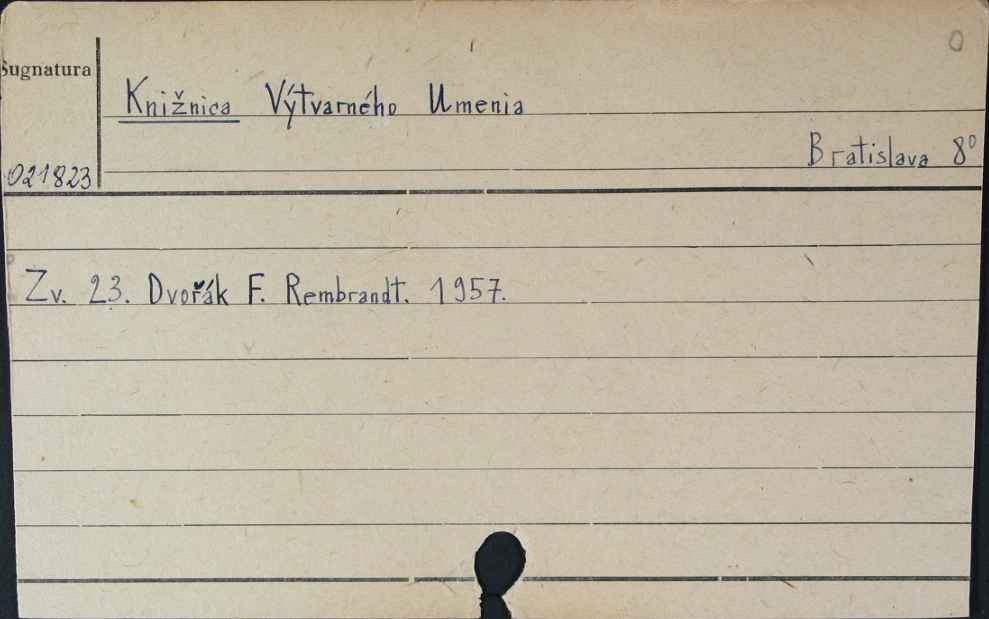 0
Sugnatura
Knižnica Výtvarného Umenia
Bratislava 8°
021823
Zv. 23. Dvořák F. Rembrandt. 1957.